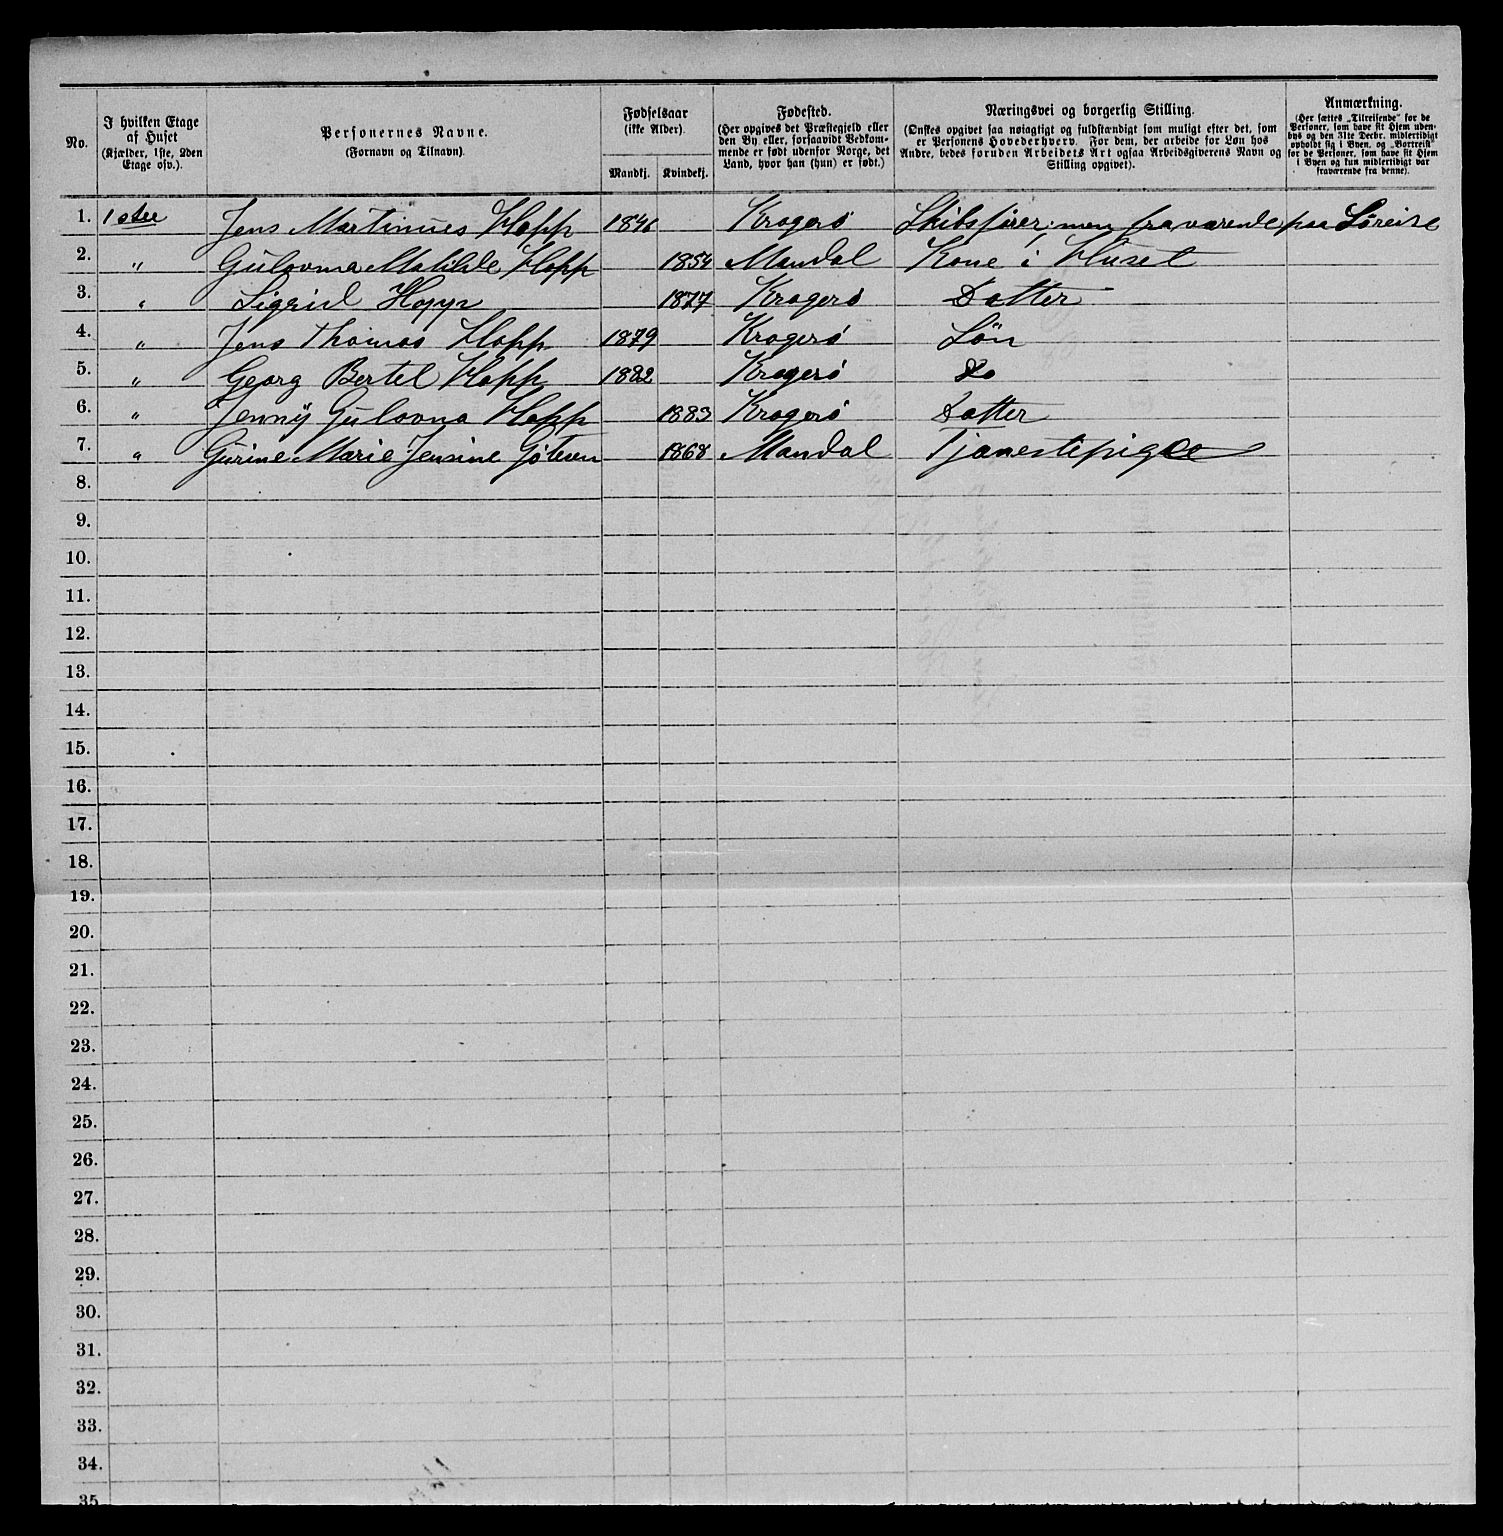 No.
I hvilken Etage af Huset
(Kjælder, 1ste, 2den Etage osv.).
Personernes Navne.
(Fornavn og Tilnavn).
Fødselsaar
(ikke Alder).
Mandkj. Kvindekj.
Fødested.
(Her opgives det Præstegjeld eller
den By eller, forsaavidt Vedkom-
mende er født udenfor Norge, det
Land, hvor han (hun) er født.)
Næringsvei og borgerlig Stilling.
(Ønskes opgivet saa nøiagtigt og fuldstændigt som muligt efter det, som
er Personens Hovederhverv. For dem, der arbeide for Løn hos
Andre, bedes foruden Arbeidets Art ogsaa Arbeidsgiverens Navn og
Stilling opgivet).
Anmærkning.
(Her sættes „Tilreisende" for de
Personer, som have sit Hjem uden-
bys og den 31te Decbr. midlertidigt
opholdt sig i Byen, og „Bortreist"
for de Personer, som have sit Hjem
i Byen og kun midlertidigt var
fraværende fra denne).
1. 1ste Jens Martinues Hopp 1846 Kragerø Skibsfører, men fraværende paa Søreise
2. " Gulovna Matilde Hopp 1854 Mandal Kone i Huset
3. " Sigrid Hopp 1877 Kragerø Datter
4. " Jens Thomas Hopp 1879 Kragerø Søn
5. " Georg Bertel Hopp 1882 Kragerø Do
6. " Jenny Gulovna Hopp 1883 Kragerø Datter
7. " Gurine Marie Jensine 1868 Mandal Tjenestepige
8.
9.
10.
11.
12.
13.
14.
15.
16.
17.
18.
19.
20.
21.
22.
23.
24.
25.
26.
27.
28.
29.
30.
31.
32.
33.
34.
35.